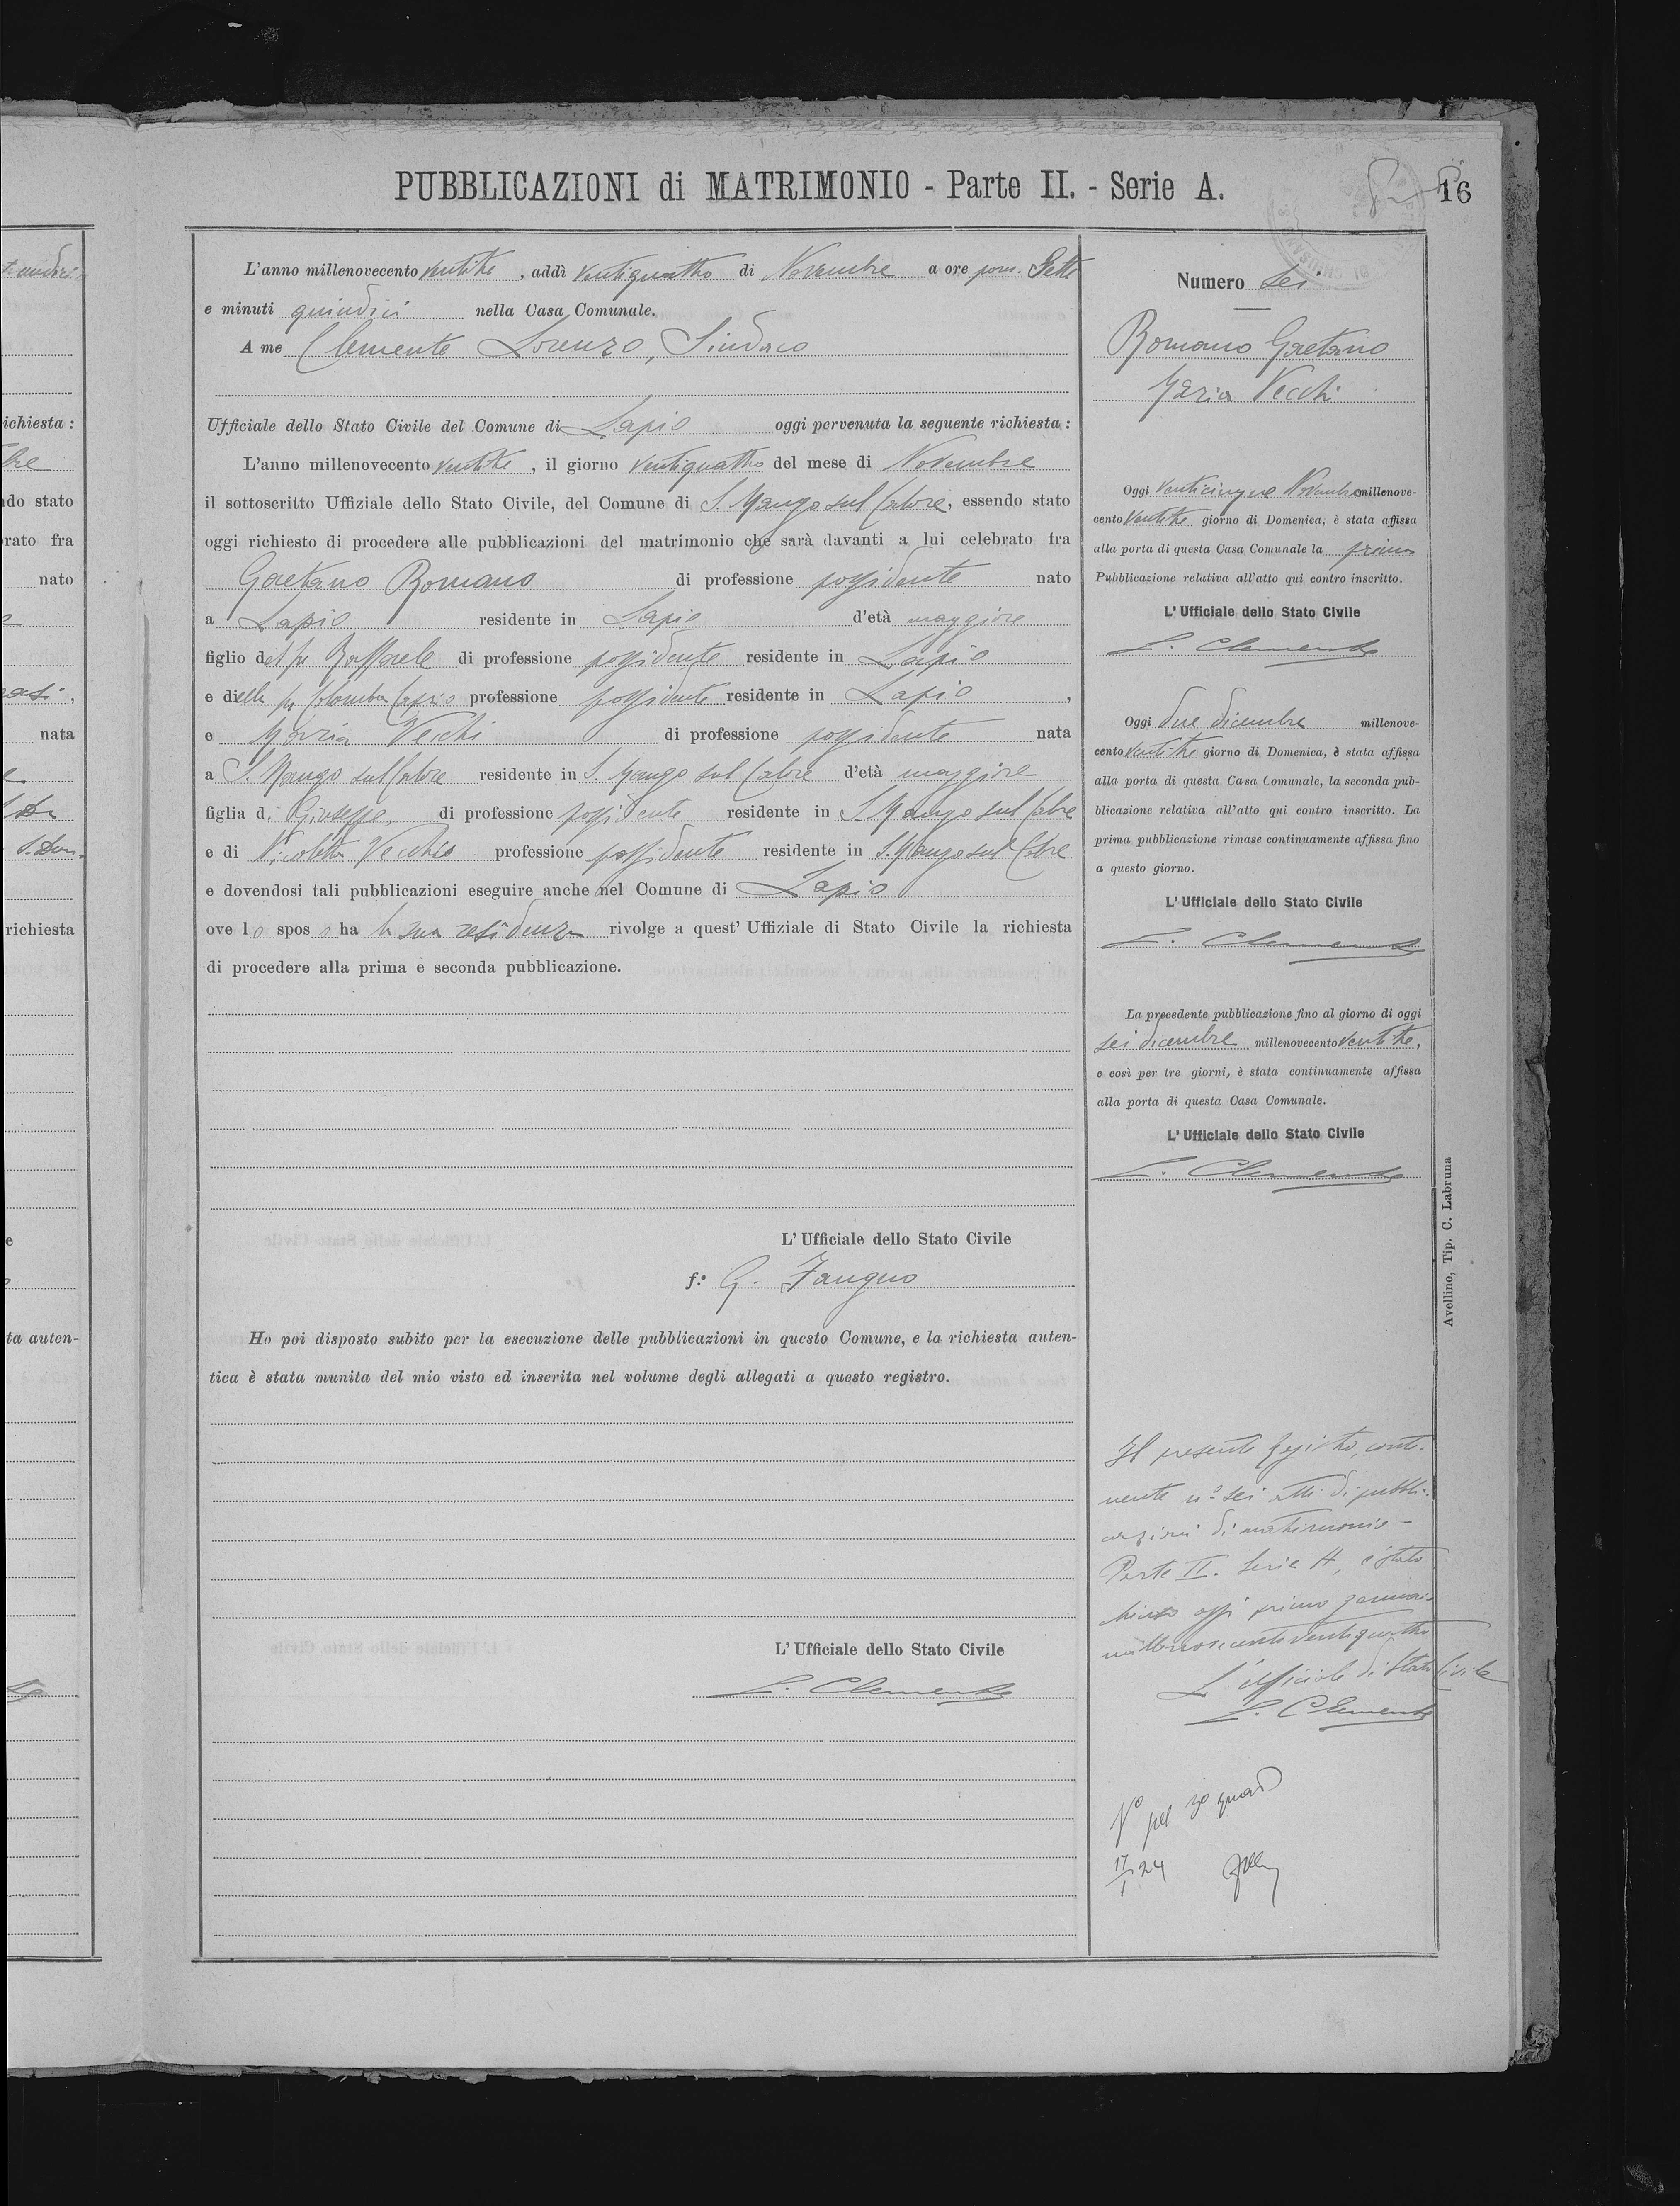 PUBBLICAZIONI di MATRIMONIO - Parte II. - Serie A.
16
L'anno millenovecento ventitre, addì ventiquattro di Novembre a ore pom. Sette
e minuti quindici nella Casa Comunale.
A me Clemente Lorenzo, Sindaco
Ufficiale dello Stato Civile del Comune di Lapio oggi pervenuta la seguente richiesta:
L'anno millenovecento ventitre, il giorno ventiquattro del mese di Novembre
il sottoscritto Uffiziale dello Stato Civile, del Comune di S. Mango sul Calore, essendo stato
oggi richiesto di procedere alle pubblicazioni del matrimonio che sarà davanti a lui celebrato fra
Gaetano Romano di professione possidente nato
a Lapio residente in Lapio d'età maggiore
figlio del fu Raffaele di professione possidente residente in Lapio
e della fu Colomba Caprio professione possidente residente in Lapio,
e Maria Vecchi di professione possidente nata
a S. Mango sul Calore residente in S. Mango sul Calore d'età maggiore
figlia di Giuseppe, di professione possidente residente in S. Mango sul Calore
e di Nicoletta Vecchio professione possidente residente in S. Mango sul Calore
e dovendosi tali pubblicazioni eseguire anche nel Comune di Lapio
ove lo sposo ha la sua residenza rivolge a quest' Uffiziale di Stato Civile la richiesta
di procedere alla prima e seconda pubblicazione.
L' Ufficiale dello Stato Civile
f.° G. Zangno
Ho poi disposto subito per la esecuzione delle pubblicazioni in questo Comune, e la richiesta auten-
tica è stata munita del mio visto ed inserita nel volume degli allegati a questo registro.
L' Ufficiale dello Stato Civile
L. Clemente
Numero Sei
Romano Gaetano
Maria Vecchi
Oggi venticinque Novembre millenove-
cento ventitre giorno di Domenica, è stata affissa
alla porta di questa Casa Comunale la prima
Pubblicazione relativa all'atto qui contro inscritto.
L' Ufficiale dello Stato Civile
L. Clemente
Oggi due dicembre millenove-
cento ventitre giorno di Domenica, è stata affissa
alla porta di questa Casa Comunale, la seconda pub-
blicazione relativa all'atto qui contro inscritto. La
prima pubblicazione rimase continuamente affissa fino
a questo giorno.
L' Ufficiale dello Stato Civile
L. Clemente
La precedente pubblicazione fino al giorno di oggi
sei dicembre millenovecento ventitre,
e così per tre giorni, è stata continuamente affissa
alla porta di questa Casa Comunale.
L' Ufficiale dello Stato Civile
L. Clemente
Il presente Registro, conte-
nente n° sei atti di pubbli-
cazioni di matrimonio -
Parte II. Serie A, è stato
chiuso oggi primo gennaio
millenovecentoventiquattro
L'Ufficiale di Stato Civile
L. Clemente
17/1 24
Avellino, Tip. C. Labruna
ichiesta:
do stato
rato fra
nato
nata
richiesta
ta auten-